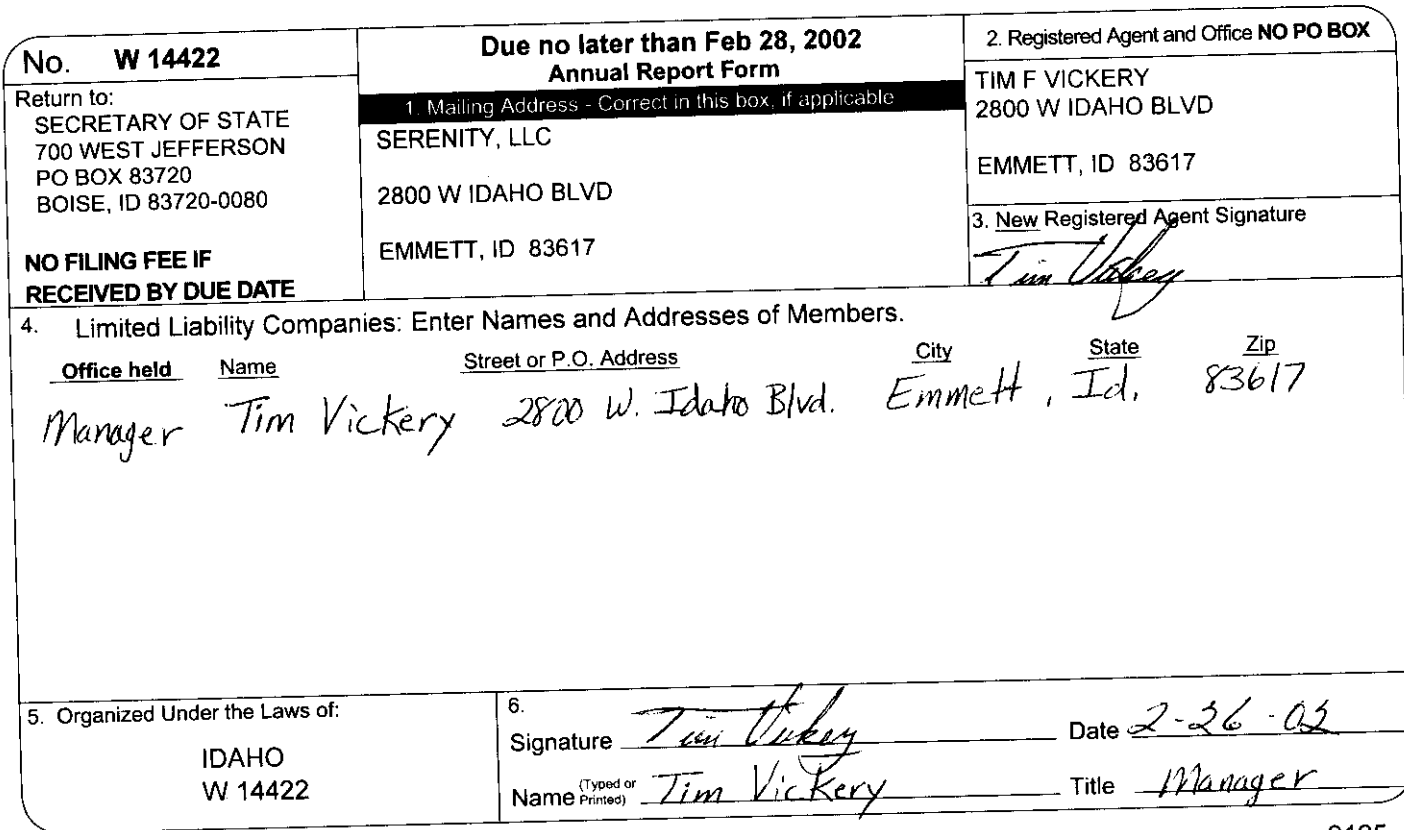 No. W 14422
Return to:
SECRETARY OF STATE
700 WEST JEFFERSON
PO BOX 83720
BOISE, ID 83720-0080
NO FILING FEE IF
RECEIVED BY DUE DATE
Due no later than Feb 28, 2002
Annual Report Form
1. Mailing Address - Correct in this box, if applicable
SERENITY, LLC
2800 W IDAHO BLVD
EMMETT, ID 83617
2. Registered Agent and Office NO PO BOX
TIM F VICKERY
2800 W IDAHO BLVD
EMMETT, ID 83617
3. New Registered Agent Signature
Tim Vickery
4. Limited Liability Companies: Enter Names and Addresses of Members.
Office held Name Street or P.O. Address City State Zip
Manager Tim Vickery 2800 W. Idaho Blvd. Emmett, Id. 83617
5. Organized Under the Laws of:
IDAHO
W 14422
6.
Signature Tim Vickery Date 2-26-02
Name (Typed or Printed) Tim Vickery Title Manager